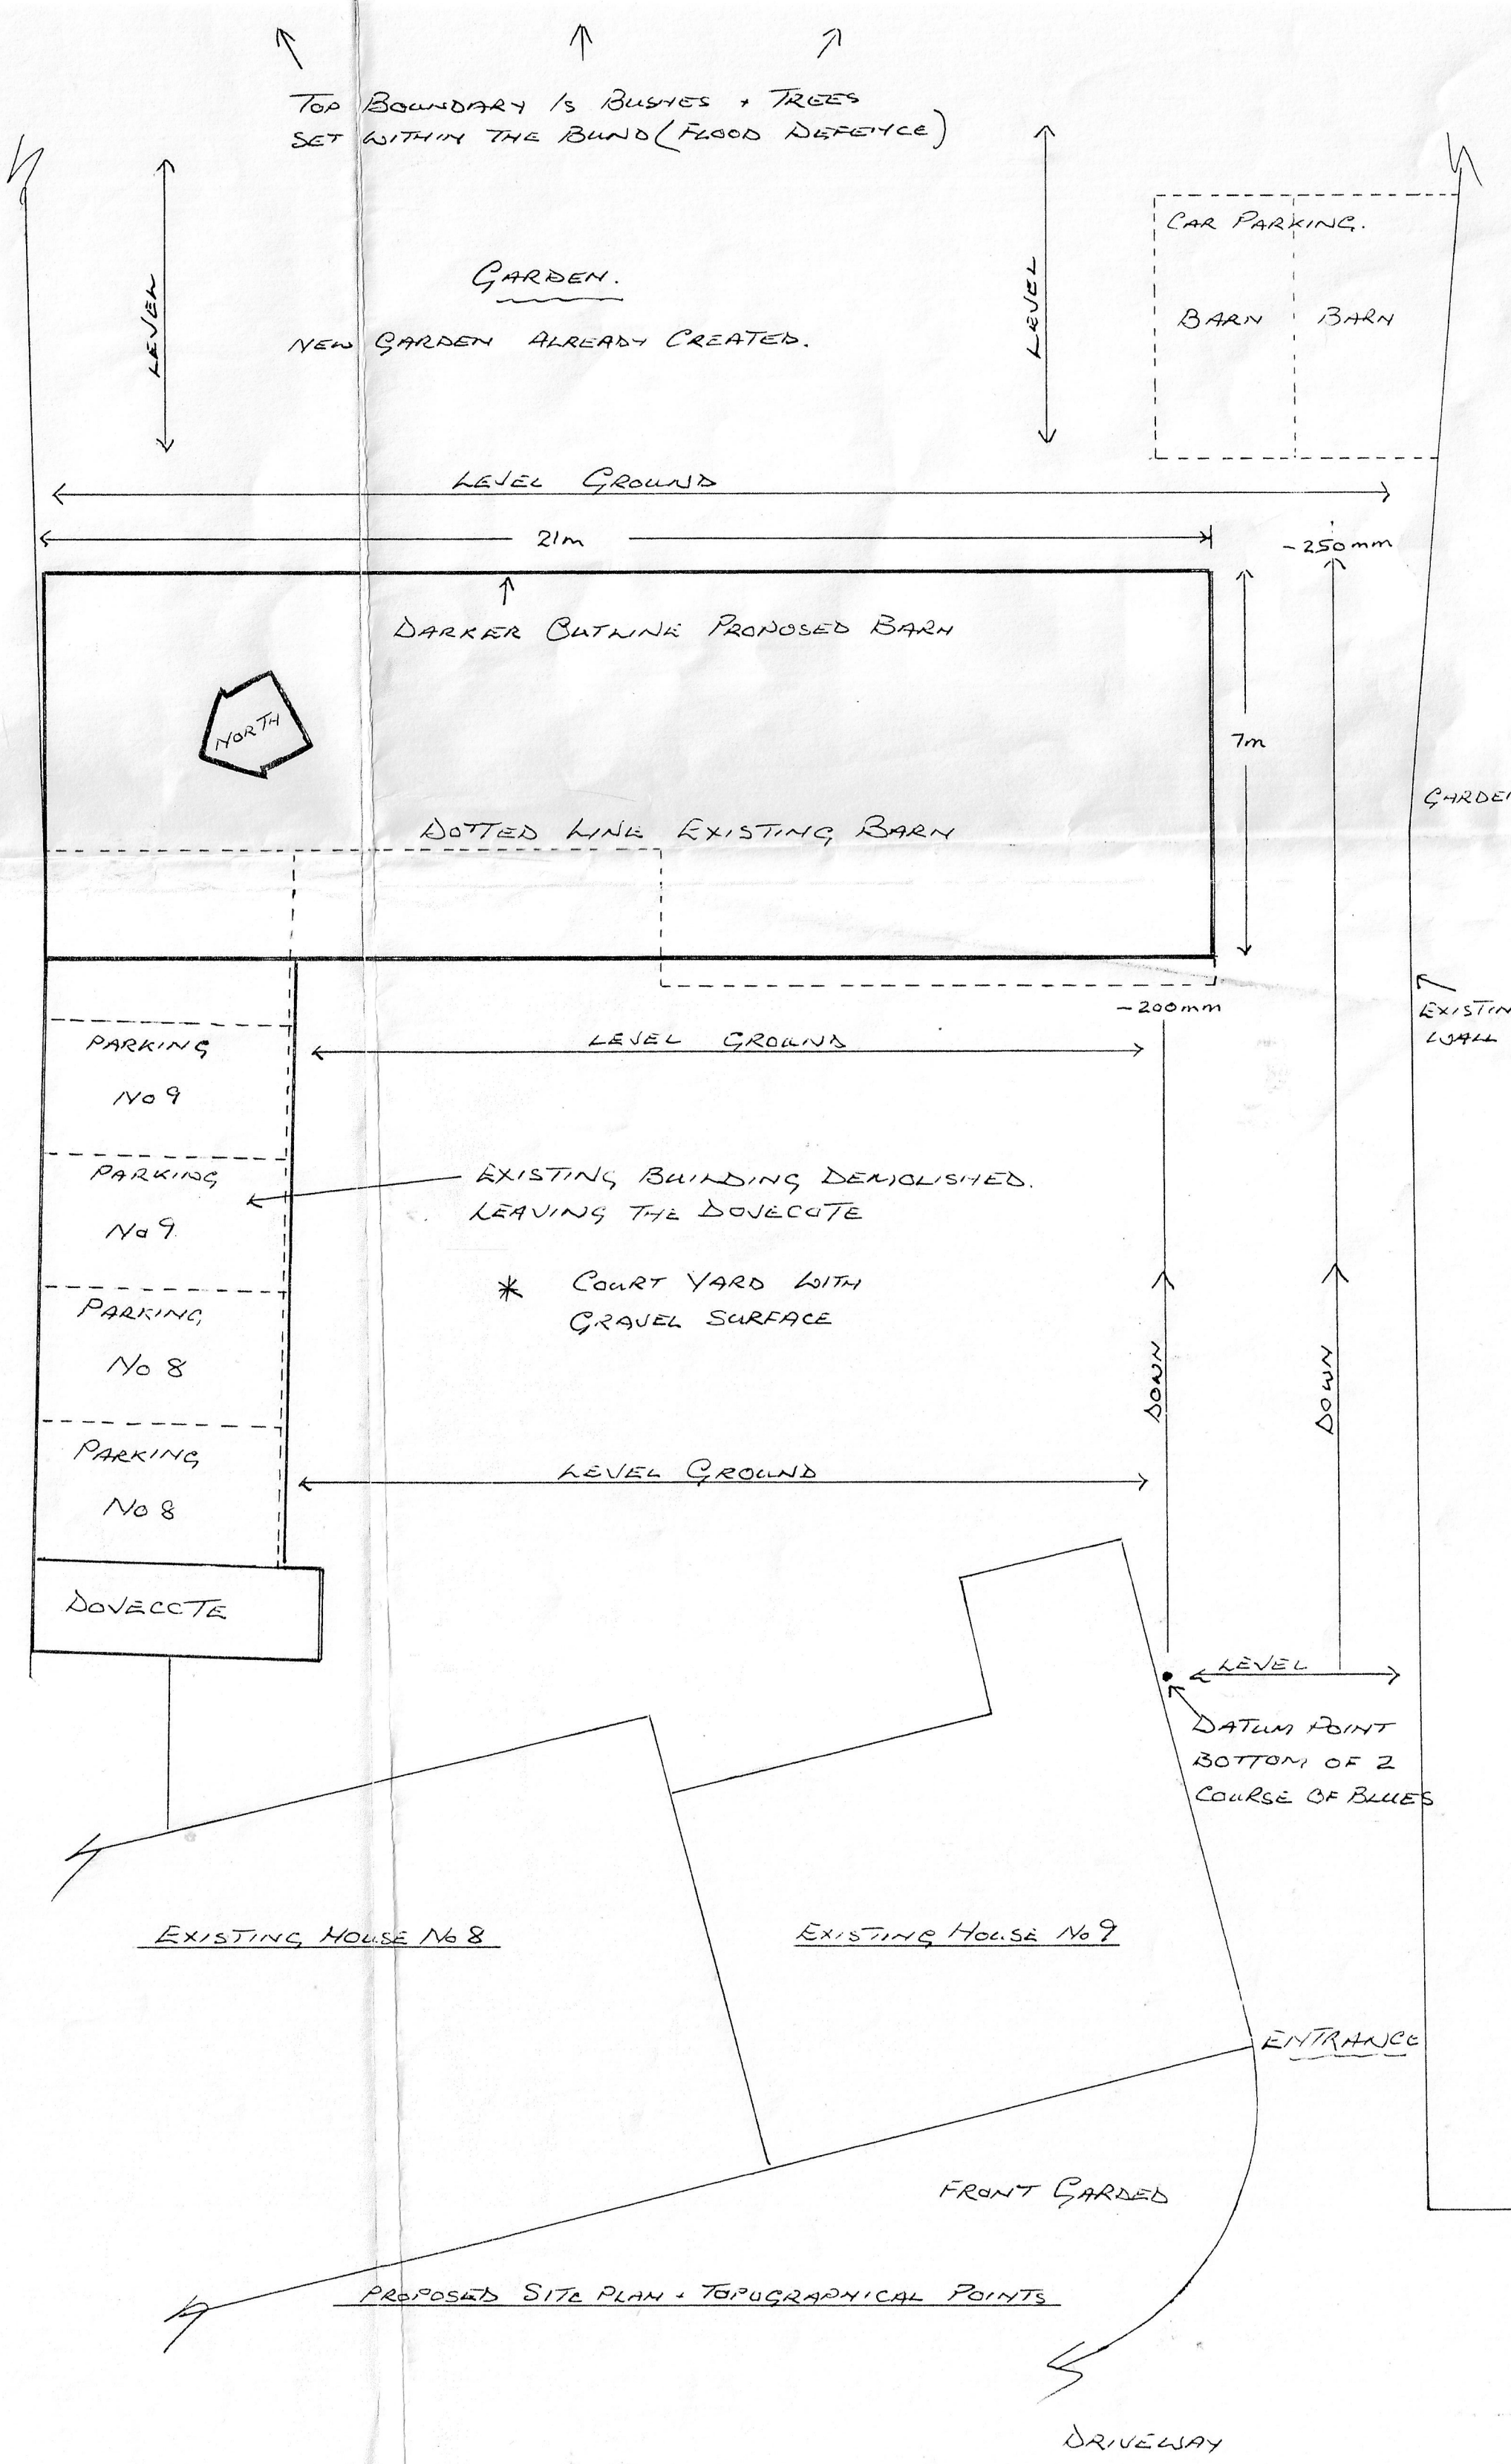 TOP BOUNDARY IS BUSHES + TREES
SET WITHIN THE BUND (FLOOD DEFENCE)
LEVEL
GARDEN.
LEVEL
CAR PARKING.
BARN BARN
NEW GARDEN ALREADY CREATED.
LEVEL GROUND
21m
-250mm
DARKER OUTLINE PROPOSED BARN
NORTH
7m
GARDE
DOTTED LINE EXISTING BARN
-200mm
EXISTIN
WALL
LEVEL GROUND
PARKING
No 9
PARKING
No 9
EXISTING BUILDING DEMOLISHED.
LEAVING THE DOVECOTE
* COURT YARD WITH
GRAVEL SURFACE
PARKING
No 8
DOWN
DOWN
PARKING
No 8
LEVEL GROUND
DOVECOTE
LEVEL
DATUM POINT
BOTTOM OF 2
COURSE OF BLUES
EXISTING HOUSE No 8
EXISTING HOUSE No 9
ENTRANCE
FRONT GARDED
PROPOSED SITE PLAN + TOPOGRAPHICAL POINTS
DRIVEWAY